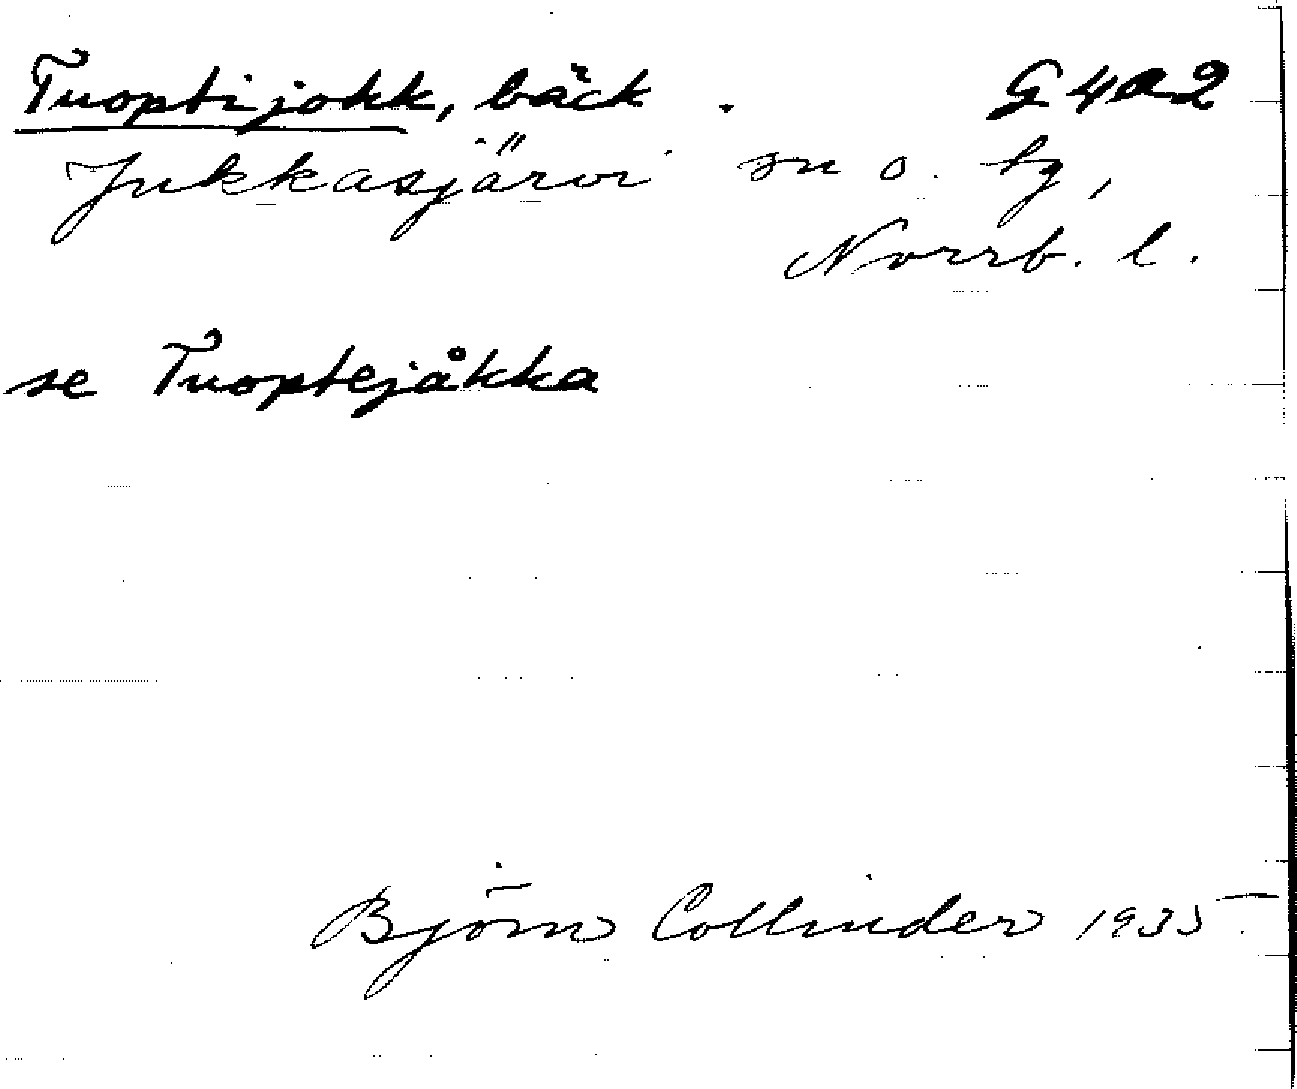 Tuoptijokk, bäck . G4a2
Jukkasjärvi sn o. tg,
Norrb. l.
se Tuoptejåkka
Björn Collinder 1935.